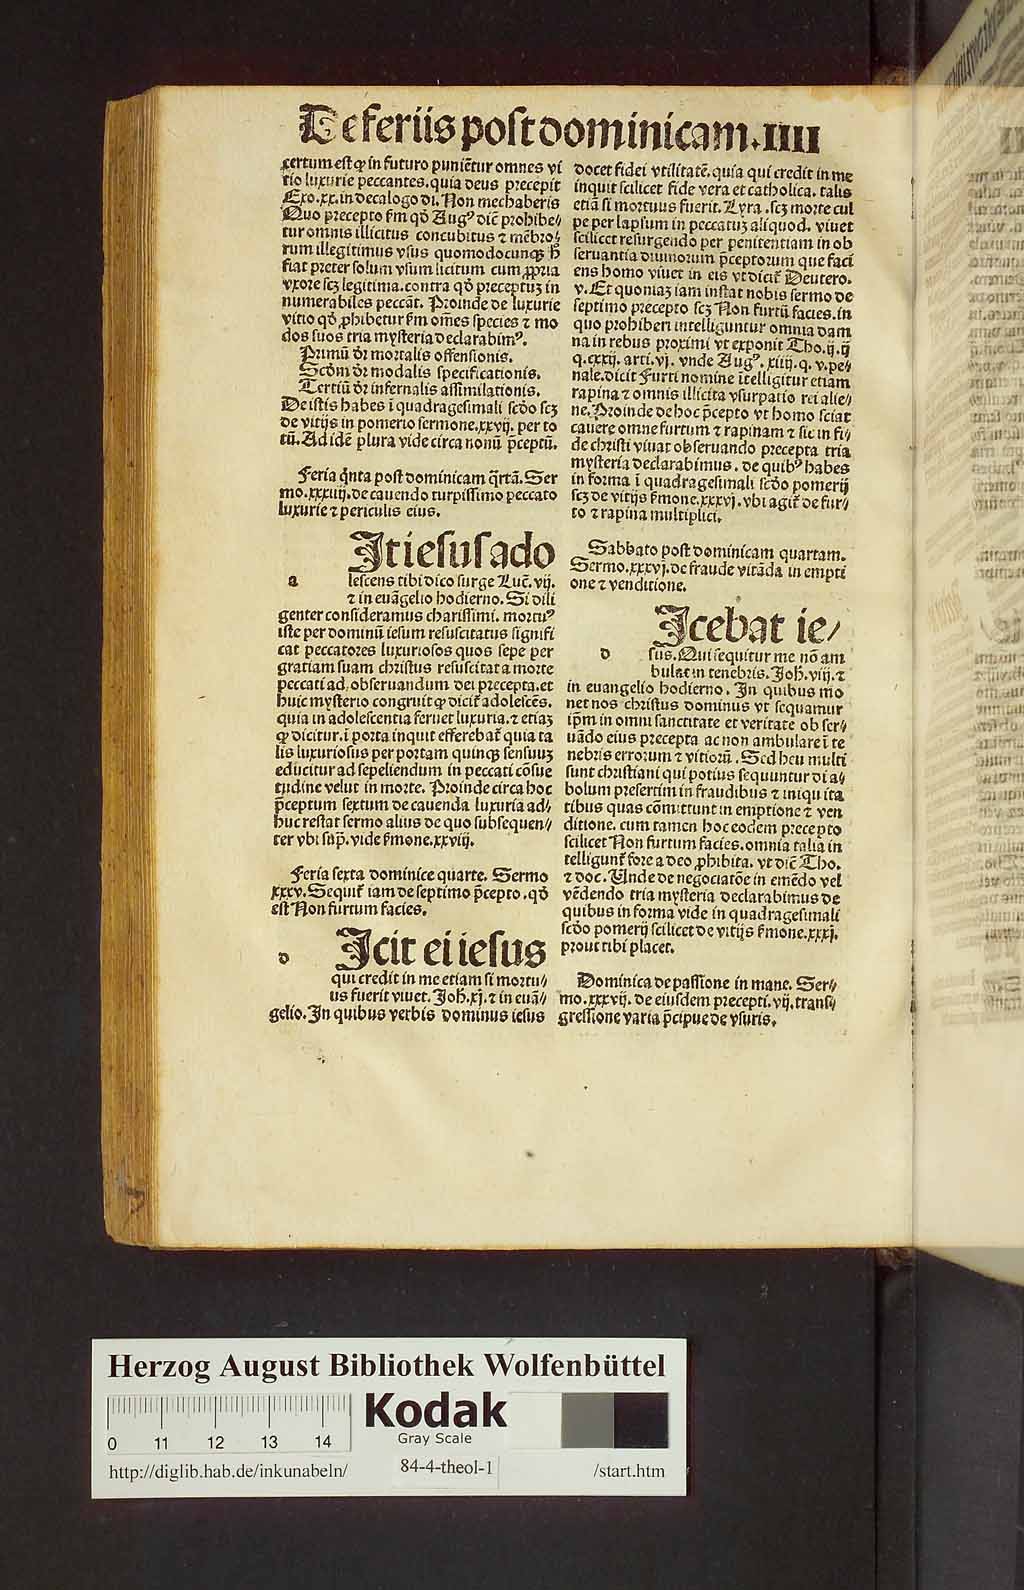 De feriis post dominicam.IIII
certum est ꝙ in futuro puniẽtur omnes vi
tio luxurie peccantes.quia deus precepit
Exo.xx.in decalogo di. Non mechaberis
Quo precepto ẜm qḋ Augꝰ dic̃ prohibe⸗
tur omnis illicitus concubitus ⁊ mẽbro⸗
rum illegitimus vsus quomodocunqꝫ h̃
fiat preter solum vsum licitum cum ꝓpria
vxore scꝫ legitima.contra qḋ preceptuꝫ in
numerabiles peccãt. Proinde de luxurie
vitio qḋ ꝓhibetur ẜm om̃es species ⁊ mo
dos suos tria mysteria declarabimꝰ.
Primũ dr̃ mortalis offensionis.
Scḋm dr̃ modalis specificationis.
Tertiũ dr̃ infernalis assimilationis.
De istis habes ĩ quadragesimali scḋo scꝫ
de vitijs in pomerio sermone.xxvij. per to
tũ. Ad idẽ plura vide circa nonũ p̃ceptũ.
Feria q̃nta post dominicam q̃rtã. Ser
mo.xxxiiij.de cauendo turpissimo peccato
luxurie ⁊ periculis eius.
It iesus ado
a lescens tibi dico surge Luc̃. vij.
⁊ in euãgelio hodierno. Si dili
genter consideramus charissimi. mortuꝰ
iste per dominũ iesum resuscitatus signifi
cat peccatores luxuriosos quos sepe per
gratiam suam christus resuscitat a morte
peccati ad obseruandum dei precepta.et
huic mysterio congruit ꝙ dicit̃ adolescẽs.
quia in adolescentia feruet luxuria.⁊ etiaꝫ
ꝙ dicitur.ĩ porta inquit efferebat̃ quia ta
lis luxuriosus per portam quinqꝫ sensuuꝫ
educitur ad sepeliendum in peccati cõsue
tudine velut in morte. Proinde circa hoc
p̃ceptum sextum de cauenda luxuria ad⸗
huc restat sermo alius de quo subsequen⸗
ter vbi sup̃. vide ẜmone.xxviij.
Feria sexta dominice quarte. Sermo
xxxv. Sequit̃ iam de septimo p̃cepto.qḋ
est Non furtum facies.
Icit ei iesus
d qui credit in me etiam si mortu⸗
us fuerit viuet. Joh.xj.⁊ in euã⸗
gelio. In quibus verbis dominus iesus
docet fidei vtilitatẽ.quia qui credit in me
inquit scilicet fide vera et catholica. talis
etiã si mortuus fuerit. Lyra .scꝫ morte cul
pe per lapsum in peccatuꝫ aliquod. viuet
scilicet resurgendo per penitentiam in ob
seruantia diuinorum p̃ceptorum que faci
ens homo viuet in eis vt dicit̃ Deutero.
v. Et quoniaꝫ iam instat nobis sermo de
septimo precepto scꝫ Non furtũ facies.in
quo prohiberi intelliguntur omnia dam
na in rebus proximi vt exponit Tho.ij.ij
q.cxxij. arti.vj. vnde Augꝰ. xiiij.q. v.pe⸗
nale.dicit Furti nomine ĩtelligitur etiam
rapina ⁊ omnis illicita vsurpatio rei alie⸗
ne. Proinde de hoc p̃cepto vt homo sciat
cauere omne furtum ⁊ rapinam ⁊ sic in fi⸗
de christi viuat obseruando precepta tria
mysteria declarabimus . de quibꝰ habes
in forma ĩ quadragesimali scḋo pomerij
scꝫ de vitijs ẜmone.xxxvj.vbi agit̃ de fur⸗
to ⁊ rapina multiplici.
Sabbato post dominicam quartam.
Sermo.xxxvj.de fraude vitãda in empti
one ⁊ venditione.
Icebat ie⸗
d sus. Qui sequitur me nõ am
bulat in tenebris. Joh.viij.⁊
in euangelio hodierno. In quibus mo
net nos christus dominus vt sequamur
ip̃m in omni sanctitate et veritate obser⸗
uãdo eius precepta ac non ambulare ĩ te
nebris errorum ⁊ vitiorũ. Sed heu multi
sunt christiani qui potius sequuntur dia⸗
bolum presertim in fraudibus ⁊ iniquita
tibus quas cõmittunt in emptione ⁊ ven
ditione. cum tamen hoc eodem precepto
scilicet Non furtum facies.omnia talia in
telligunt̃ fore a deo ꝓhibita. vt dic̃ Tho.
⁊ doc. Unde de negociatõe in emẽdo vel
vẽdendo tria mysteria declarabimus de
quibus in forma vide in quadragesimali
scḋo pomerij scilicet de vitijs ẜmone.xxxj.
prout tibi placet.
Dominica de passione in mane. Ser⸗
mo.xxxvij. de eiusdem precepti.vij.trans⸗
gressione varia p̃cipue de vsuris.
Herzog August Bibliothek Wolfenbüttel
0 11 12 13 14
Kodak
Gray Scale
http://diglib.hab.de/inkunabeln/ 84-4-theol-1 /start.htm